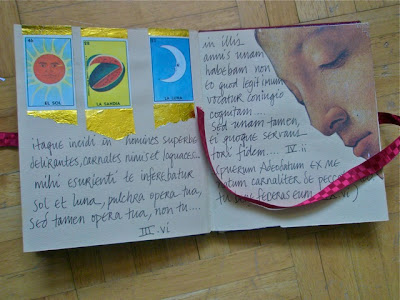 46
EL SOL
LA SANDIA
LA LUNA
itaque incidi in homines superbe
delirantes, carnales nimis et loquaces...
mihi esurienti te inferebatur
sol et luna, pulchra opera tua,
sed tamen opera tua, non tu....
III.vi
in illis
annis unam
habebam non
eo quod legitimum
vocatur coniugio
cognitam ....
sed unam tamen,
ei quoque servans
tori fidem.... IV ii
(puerum Adeodatum ex me
natum carnaliter de peccato
tu bene feceras eum